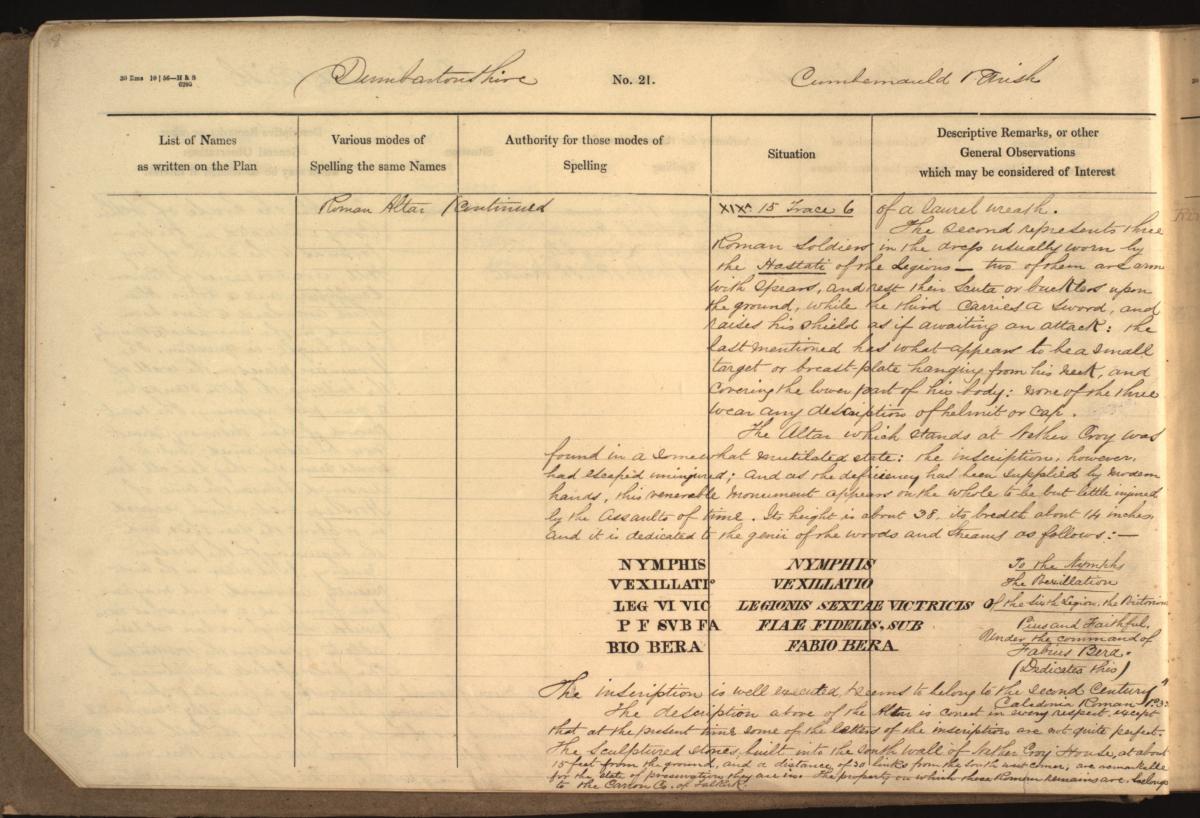 20 Ems 10 | 56—H & S
6295
Dumbartonshire
No. 21.
Cumbernauld Parish
List of Names
as written on the Plan
Various modes of
Spelling the same Names
Authority for those modes of
Spelling
Situation
Descriptive Remarks, or other
General Observations
which may be considered of Interest
Roman Altar (Continued
XIXA 15 Trace 6
of a laurel wreath.
The second represents three
Roman Soldiers in the dress usually worn by
the Hastati of the Legions — two of them are arm
with Spears, and rest their Scuta or bucklers upon
the ground, while the third carries a sword, and
raises his shield as if awaiting an attack: the
last mentioned has what appears to be a small
target or breast-plate hanging from his neck, and
covering the lower part of his body: none of the three
wear any description of helmit or cap.
The Altar which stands at Nether Croy was
found in a somewhat mutilated state: the inscription, however,
had escaped uninjured; and as the deficiency has been supplied by modern
hands, this venerable monument appears on the whole to be but little injured
by the assaults of time. Its height is about 38. its bredth about 14 inches
and it is dedicated to the genii of the woods and streams as follows:—
NYMPHIS
VEXILLATIO
LEG VI VIC
P F SVB FA
BIO BERA
NYMPHIS
VEXILLATIO
LEGIONIS SEXTAE VICTRICIS
PIAE FIDELIS, SUB
FABIO BERA
To the Nymphs
The Vexillation
of the Sixth Legion, the Victorious
Pius and Faithful.
Under the command of
Fabius Bera.
(Dedicates this)
The inscription is well executed & seems to belong to the second Century"
Caledonia Roman
The description above of the Altar is correct in every respect, except
that at the present time some of the letters of the inscription are not quite perfect.
The sculptured stones, built into the south wall of Nether Croy House, at about
15 feet from the ground, and a distance of 30 links from the south west corner, are remarkable
for the state of preservation they are in. The property on which these Roman remains are, belongs
to the Carron Co. of Falkirk.